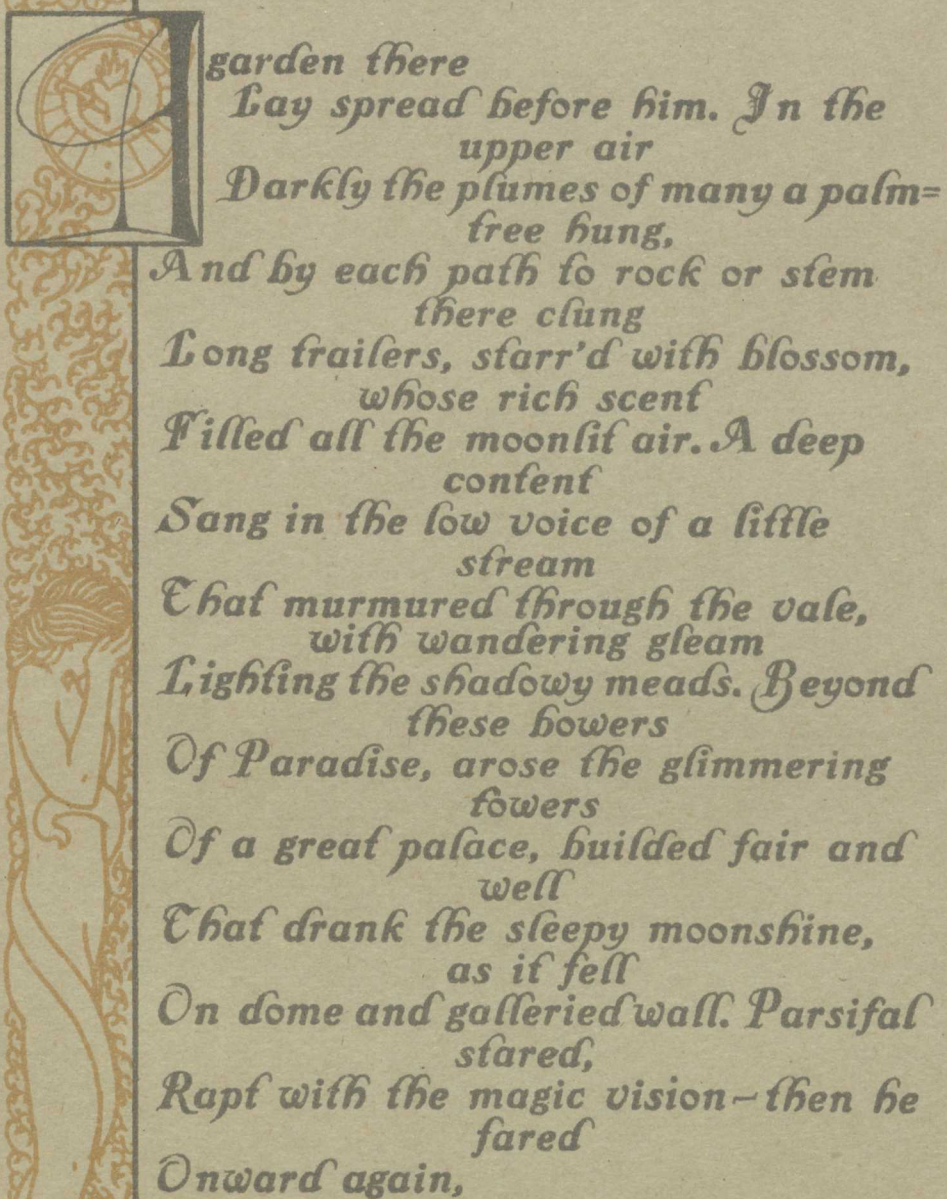 A garden there
Lay spread before him. In the
upper air
Darkly the plumes of many a palm=
tree hung,
And by each path to rock or stem
there clung
Long trailers, starr'd with blossom,
whose rich scent
Filled all the moonlit air. A deep
content
Sang in the low voice of a little
stream
That murmured through the vale,
with wandering gleam
Lighting the shadowy meads. Beyond
these bowers
Of Paradise, arose the glimmering
towers
Of a great palace, builded fair and
well
That drank the sleepy moonshine,
as it fell
On dome and galleried wall. Parsifal
stared,
Rapt with the magic vision–then he
fared
Onward again,